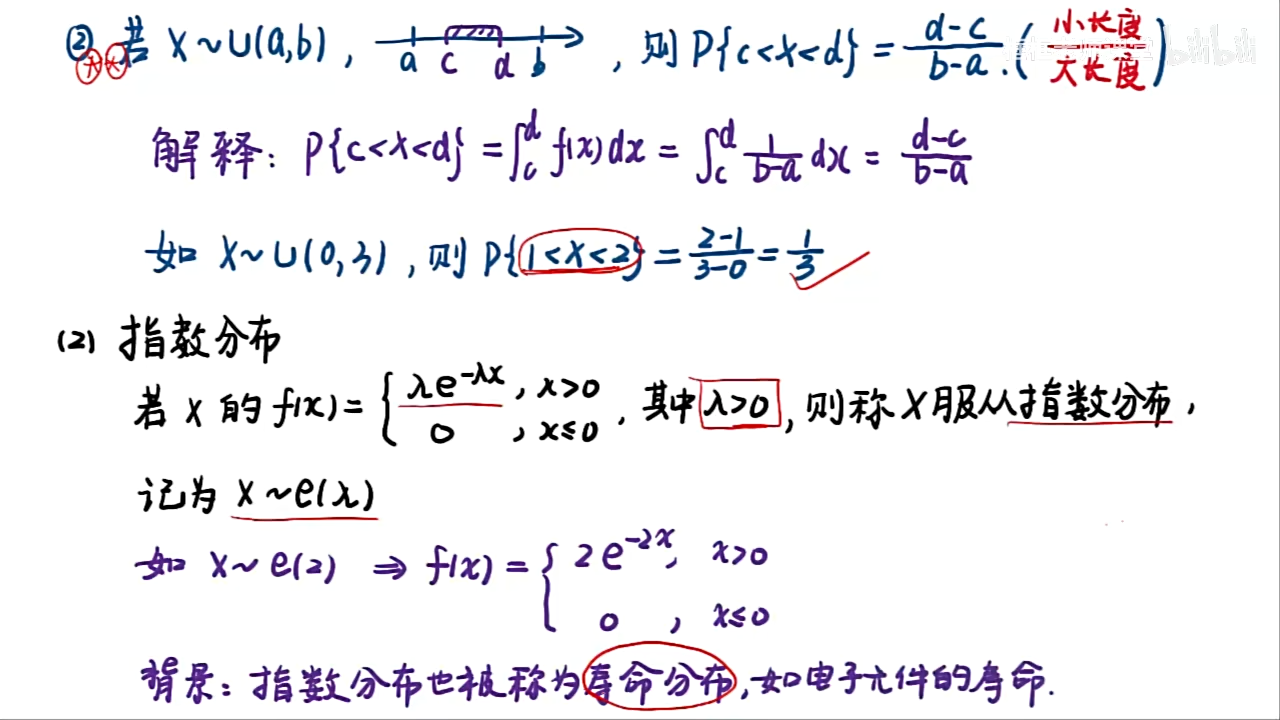 ② 若 X~U(a,b), a c d b, 则 P{c<X<d} = (d-c)/(b-a). (小长度/大长度)
解释: P{c<X<d} = ∫_c^d f(x)dx = ∫_c^d 1/(b-a) dx = (d-c)/(b-a)
如 X~U(0,3), 则 P{1<X<2} = (2-1)/(3-0) = 1/3 ✓
(2) 指数分布
若 X 的 f(x) = { λe^{-λx}, x>0
0, x≤0 , 其中 λ>0, 则称 X 服从指数分布,
记为 X~e(λ)
如 X~e(2) ⇒ f(x) = { 2e^{-2x}, x>0
0, x≤0
背景: 指数分布也被称为寿命分布, 如电子元件的寿命.